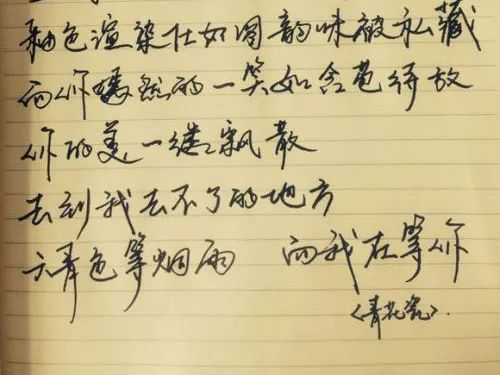 釉色渲染仕如图韵味被私藏
而你嫣然的一笑如含苞待放
你的美一缕飘散
去到我去不了的地方
天青色等烟雨 而我在等你
《青花瓷》.